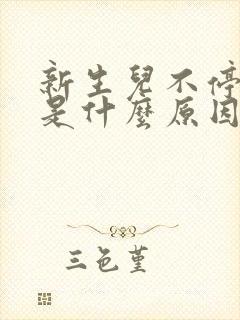 新生兒不停
是什麼原因
三色堇